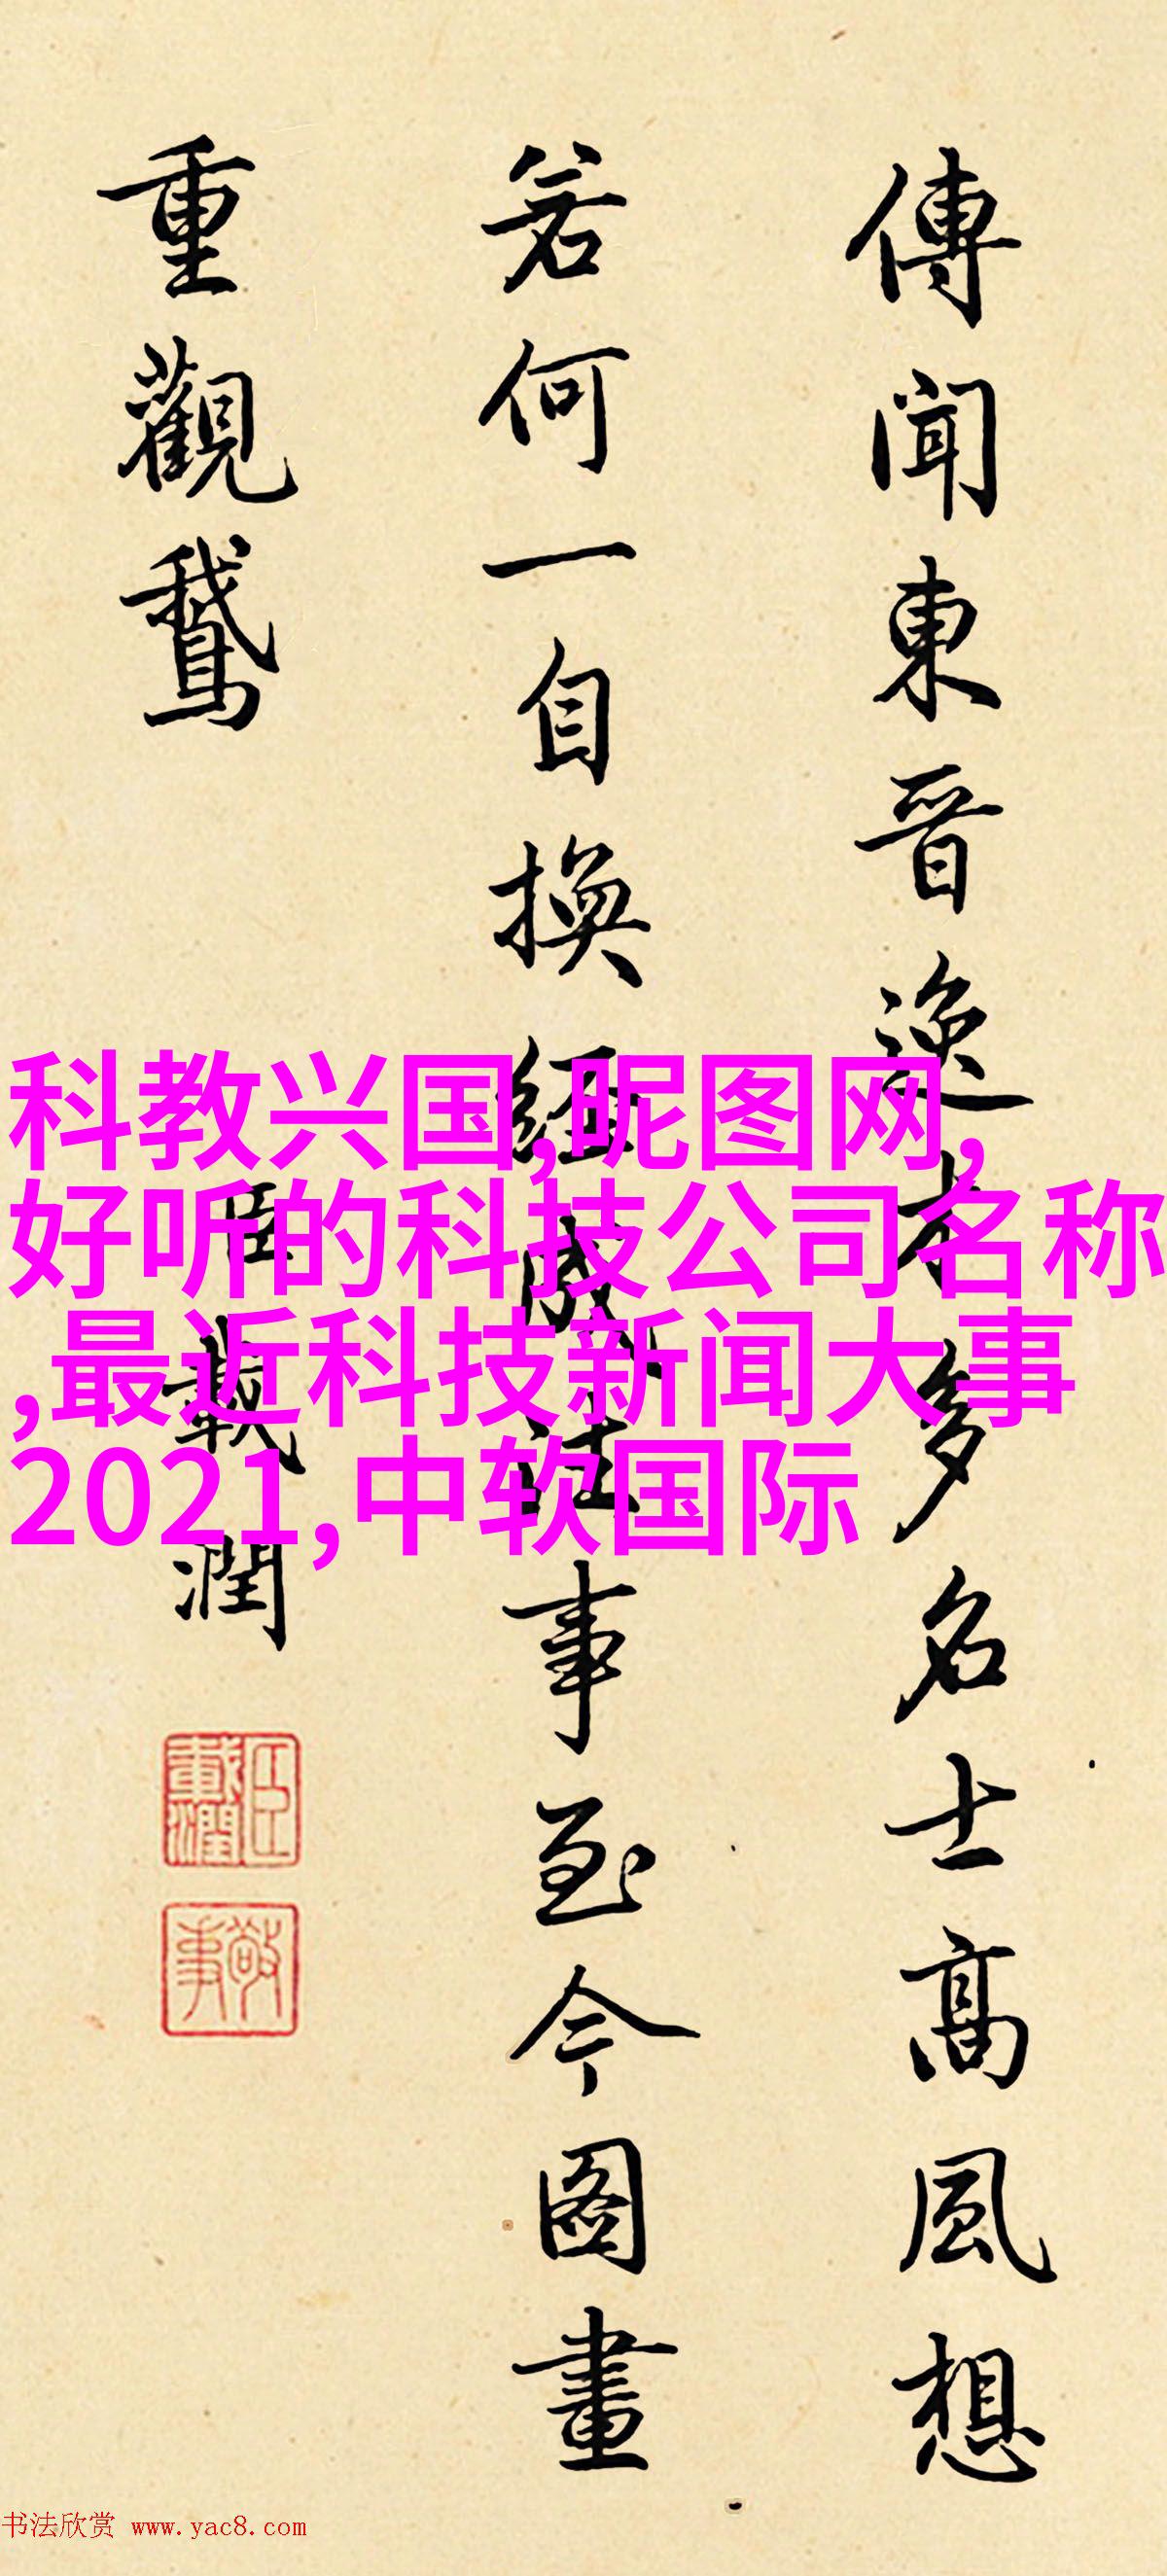 傳聞東晉逸才多名士高風想
若何一自換經成往事至今圖畫
重觀鵝
臣載潤
臣載潤
敬事
科教兴国,昵图网,
好听的科技公司名称
,最近科技新闻大事
2021,中软国际
书法欣赏 www.yac8.com